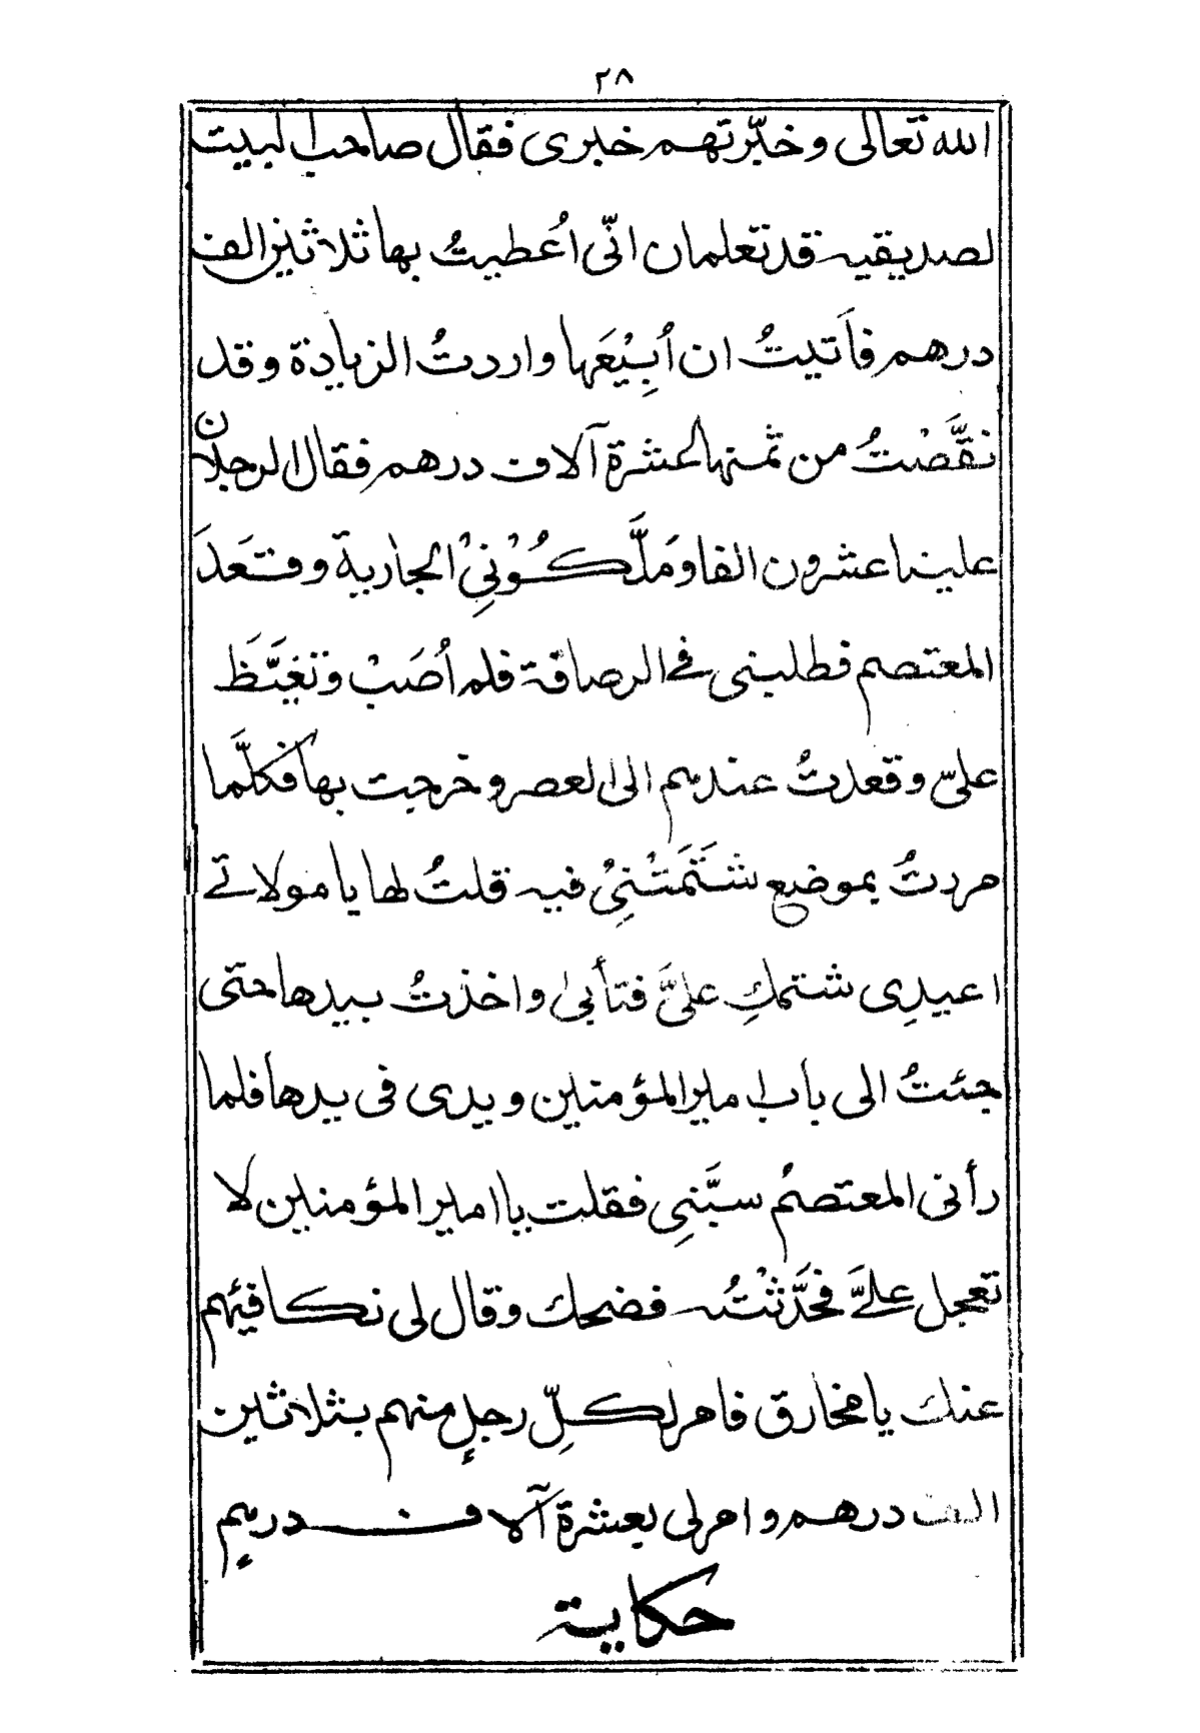 ٢٨
الله تعالى وخبّرتهم خبرى فقال صاحب البيت
لصديقيه قد تعلمان انّى اُعطيتُ بها ثلاثين الف
درهم فاَتيتُ ان اُبِيْعَها واردتُ الزيادة وقد
نقَّصْتُ من ثمنها عشرة آلاف درهم فقال الرجلان
علينا عشرون الفا ومَلَّكُوْنِيْ الجارية وقعَدَ
المعتصم فطلبنى فے الرصافة فلم اُصَبْ وتغيَّظَ
علىّ وقعدتُ عندهم الى العصر وخرجت بها فكلَّما
مررتُ بموضع شَتَمَتْنِيْ فيه قلتُ لها يا مولاتے
اعيدِى شتمكِ علىَّ فتأبىٰ واخذتُ بيدها حتى
جئتُ الى باب امير المؤمنين ويدى فى يدها فلما
رأنى المعتصمُ سبَّنِى فقلت يا امير المؤمنين لا
تعجل علےَّ فحَدَّثْتُه فضحك وقال لى نكافيهم
عنك يا مخارق فامر لكلِّ رجلٍ منهم بثلاثين
الف درهم وامر لى بعشرة آلاف درهمٍ
حكاية